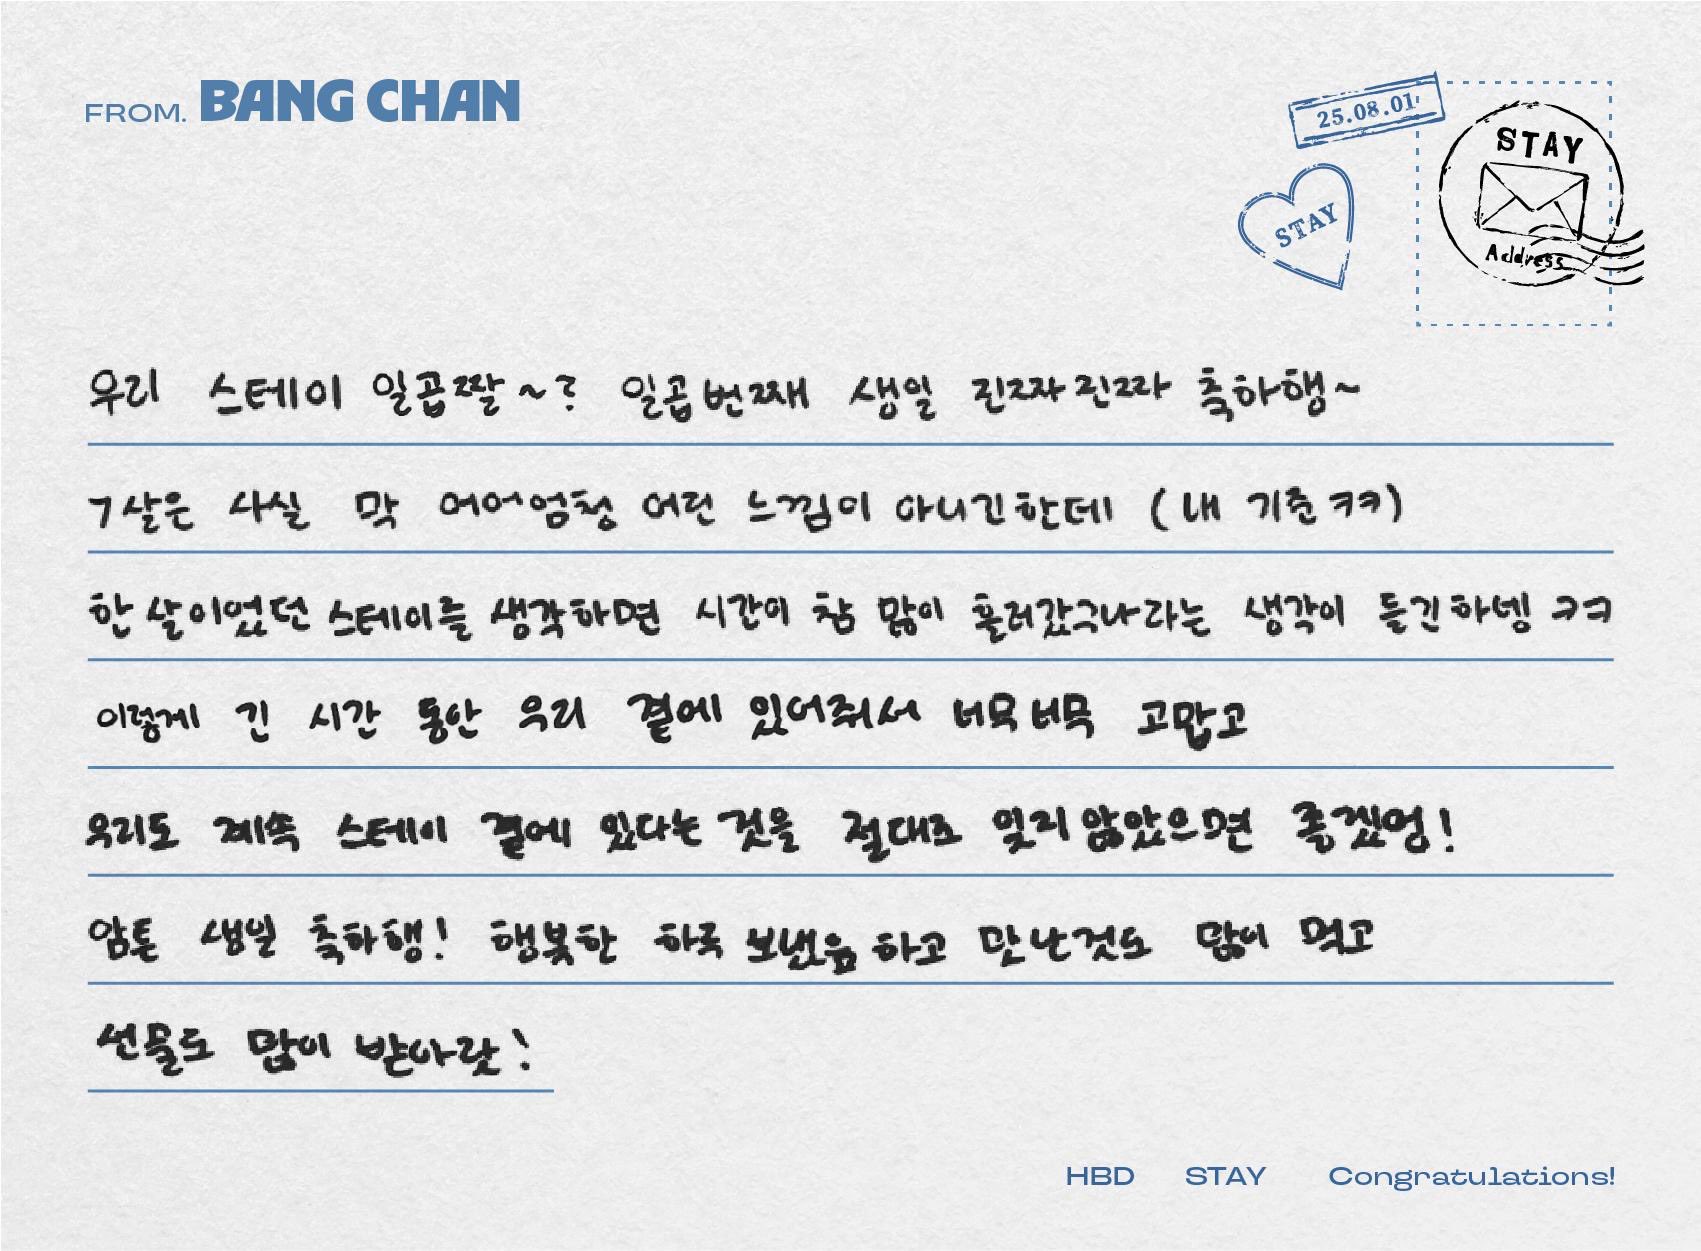 FROM. BANG CHAN
25.08.01
STAY
STAY
Address
우리 스테이 일곱짤~? 일곱번째 생일 진짜진짜 축하행~
7살은 사실 막 어어엄청 어린 느낌이 아니긴한데 (내 기준ㅋㅋ)
한살이었던 스테이를 생각하면 시간이 참 많이 흘러갔구나라는 생각이 들긴하넹 ㅋㅋ
이렇게 긴 시간 동안 우리 곁에 있어줘서 너무너무 고맙고
우리도 계속 스테이 곁에 있다는 것을 절대로 잊지않았으면 좋겠엉!
암튼 생일 축하행! 행복한 하루 보냈음 하고 맛난것도 많이 먹고
선물도 많이 받아랏!
HBD STAY Congratulations!